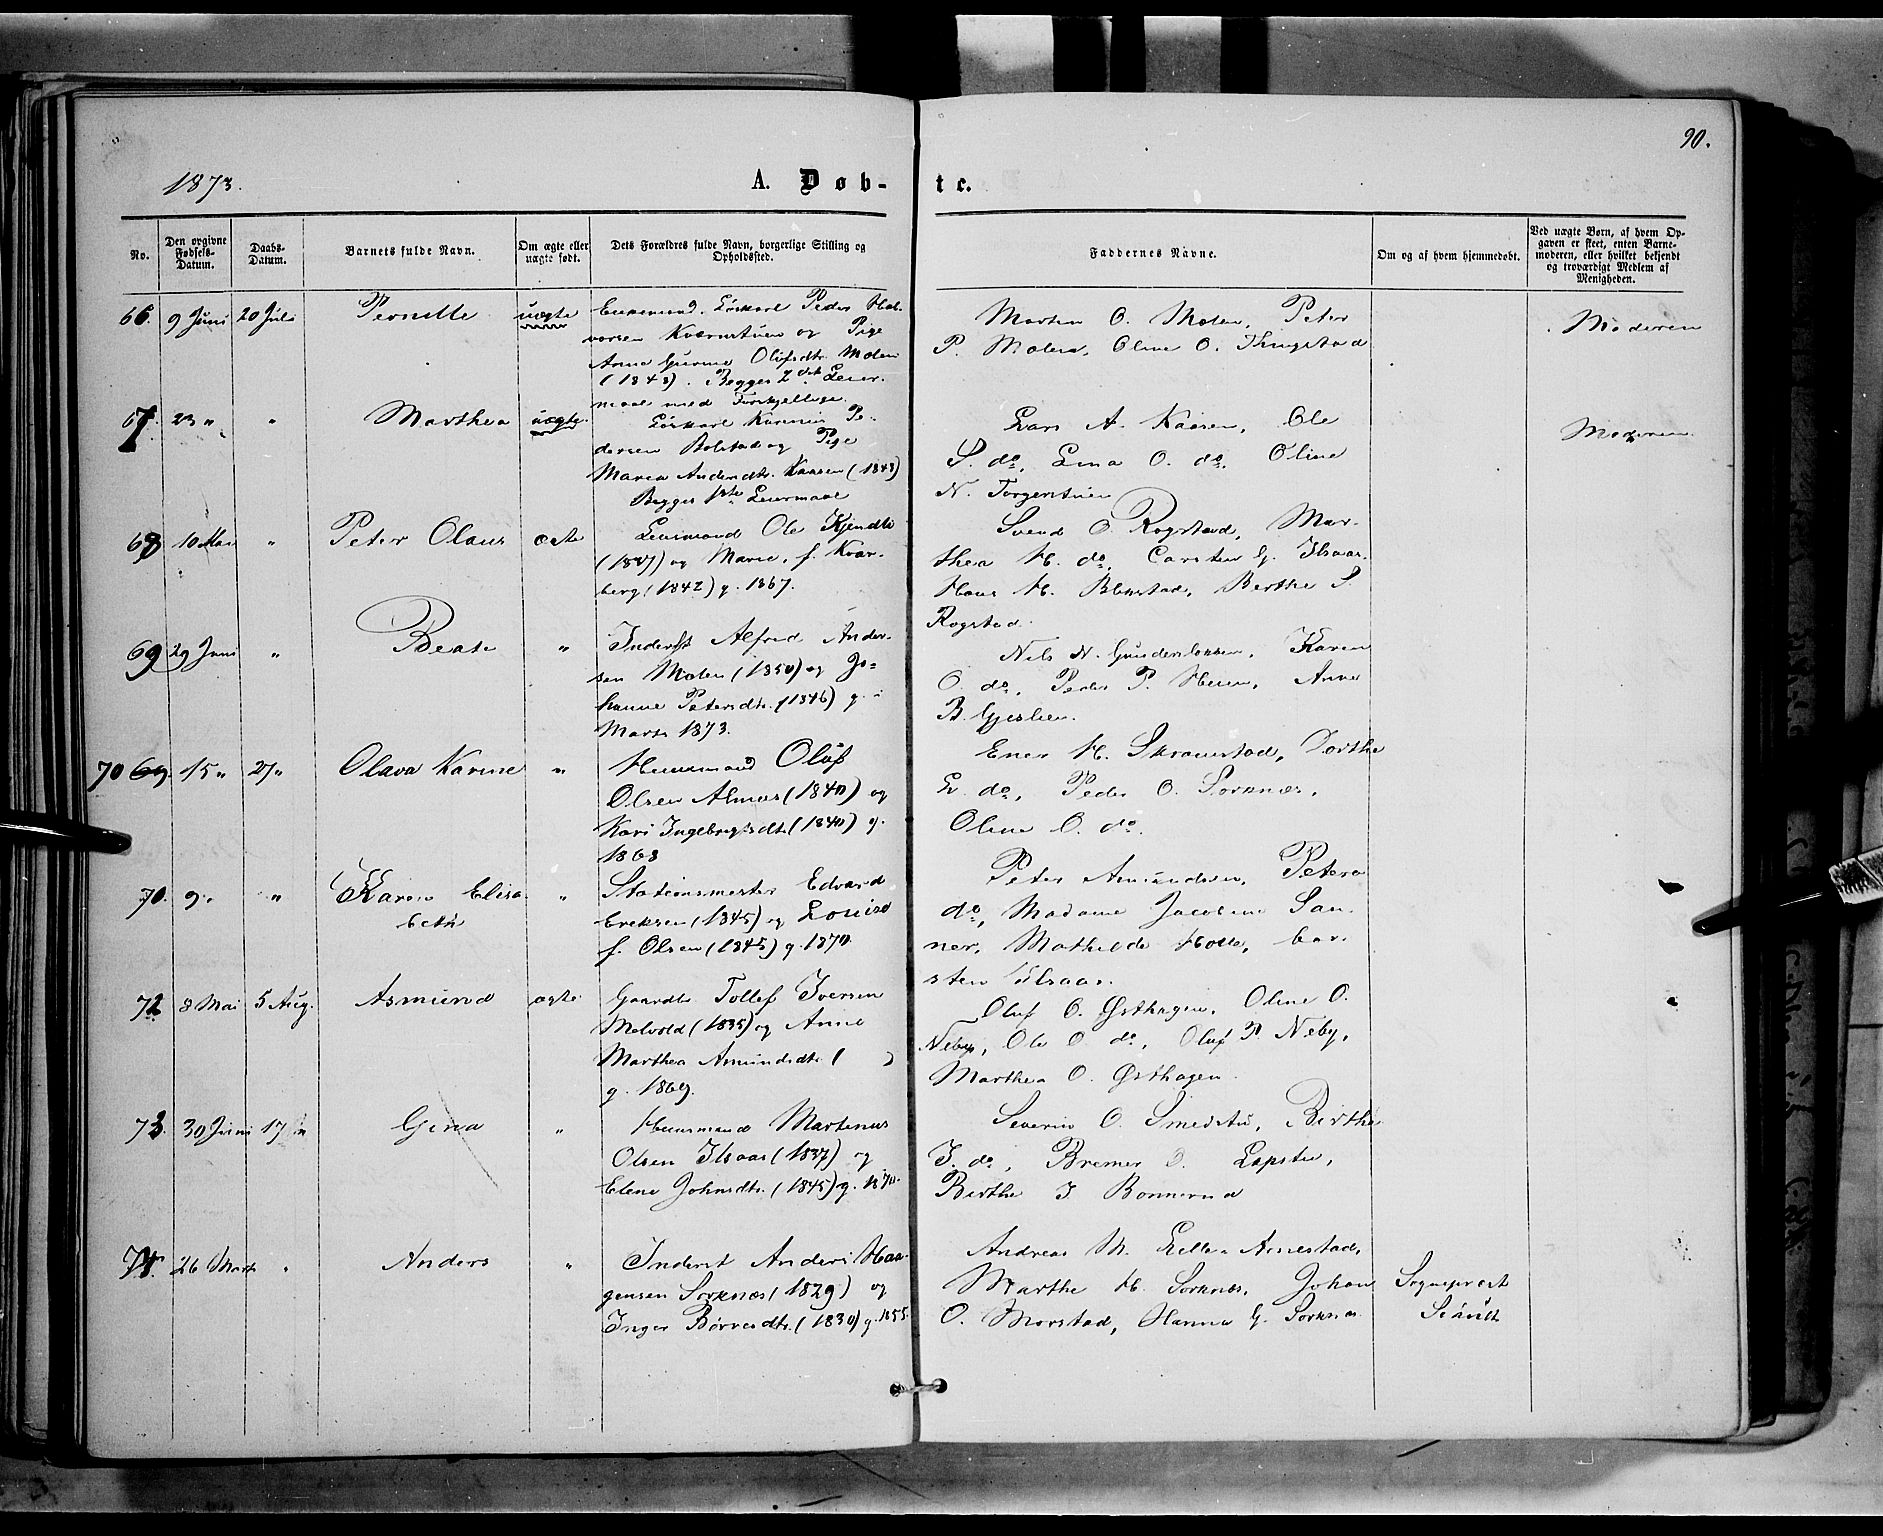 90.
1873.
A. Døb-
te.
No.
Den opgivne Fødsels-Datum.
Daabs-Datum.
Barnets fulde Navn.
Om ægte eller uægte født.
Dets Forældres fulde Navn, borgerlige Stilling og Opholdssted.
Faddernes Navne.
Om og af hvem hjemmedøbt.
Ved uægte Børn, af hvem Opgaven er skeet, enten Barnemoderen, eller hvilket bekjendt og troværdigt Medlem af Menigheden.
66. 9 Juni 20 Juli Pernille uægte
Enkemand, Løskarl Peder Hal-
vorsen Kværnstuen og Pige
Anne Gurine Olufsdtr. Molen
(1848). Begges 2det Leier-
maal med Forskjellige.
Morten O. Molen, Peter
P. Molen, Oline O.
Moderen
67. 23 " " Marthea uægte
Løskarl Pe-
dersen Bolstad og Pige
Maren Andersdtr. Kaasen (1848)
Begges 1ste Leiermaal
Lars A. Kaasen, Ole
S. do, Lina O. do, Oline
N. Torgerstuen
Moderen
68 10 Mai " Peter Olaus ægte
Leiermand Ole Kjendli
(1847) og Marie, f. Kvar-
berg (1842) g. 1867.
Svend O. Rogstad, Mar-
thea H. do, Carsten G. Ilsaas
Hans H. Blikstad, Berthe S.
Rogstad.
69 29 Juni " Beate "
Inderst Alfred Ander-
sen Molen (1850) og Jo-
hanne Petersdtr. (1846) g. i
Marts 1873.
Nils N. Karen
O. do, Peder P. Anne
B. Gjeslien.
70 69. 15 " 27 " Olava Karine "
Huusmand Oluf
Olsen Alnæs (1840) og
Kari Ingebrigtsdtr. (1840) g.
1868
Ener H. Skramstad, Dorthe
E. do, Peder O. Sorknæs,
Oline O. do.
70. 9 " " Karen Elisa- "
beth
Stationsmester Edvard
Eriksen (1845) og Louise
f. Olsen (1845) g. 1870.
Peter Amundsen, Petera
do, Madame Jacobine San-
ner, Mathilde Holle, Car-
sten Ilsaas.
72 8 Mai 5 Aug. Asmund ægte
Gaardbr. Tollef Iversen
Melvold (1835) og Anne
Marthea Amundsdtr. ( )
g. 1869.
Oluf O. Østhagen, Oline O.
Neby, Ole O do, Oluf P. Neby,
Marthea O. Østhagen.
73. 30 Juni 17 Gina "
Huusmand Martinus
Olsen Ilsaas (1837) og
Elene Johnsdtr. (1845) g. 1870.
Severin O. Smedstu, Birthe
J. do, Bremer O. Lapstu,
Birthe J. Bonnerud
74. 26 Marts " Anders "
Inderst Anders Haa-
gensen Sorknæs (1829) og
Inger Børresdtr. (1830) g. 1855.
Andreas M. Arnestad,
Marthe H. Sorknæs, Johan
O. Morstad, Hanna G. Sorknæs
Sogneprest